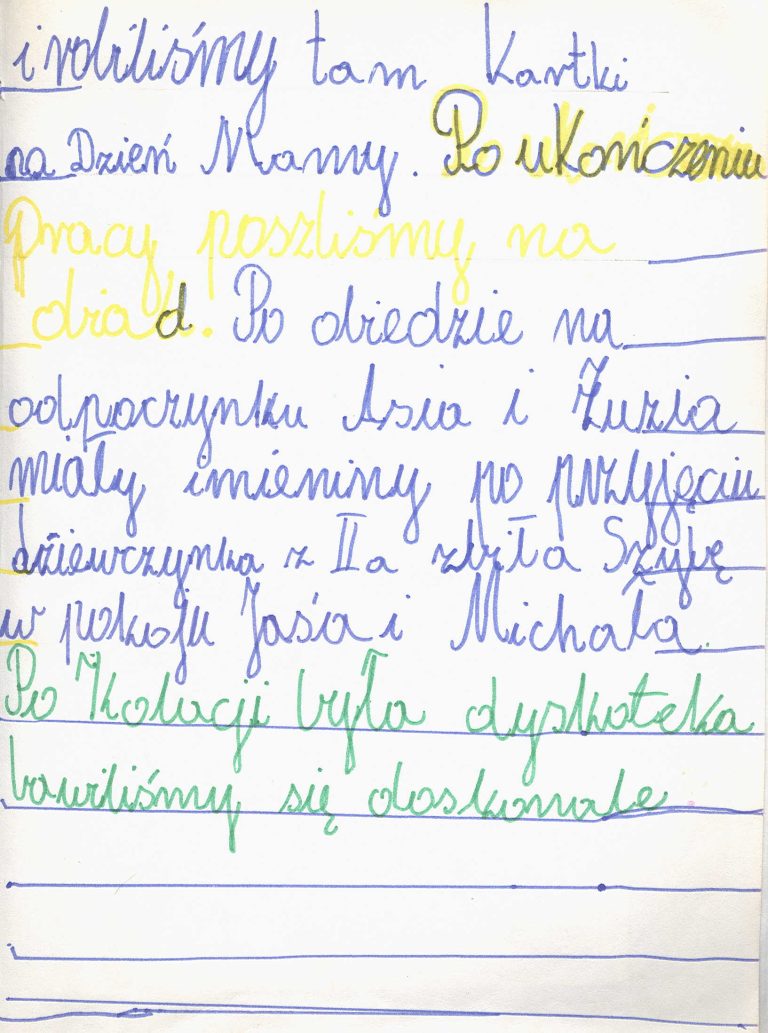 i robiliśmy tam Kartki
na Dzień Mamy. Po ukończeniu
pracy poszliśmy na
obiad. Po obiedzie na
odpoczynku Asia i Zuzia
miały imieniny po przyjęciu
dziewczynka z IIa zbiła Szybę
w pokoju Jasia i Michała.
Po Kolacji była dyskoteka
bawiliśmy się doskonale.